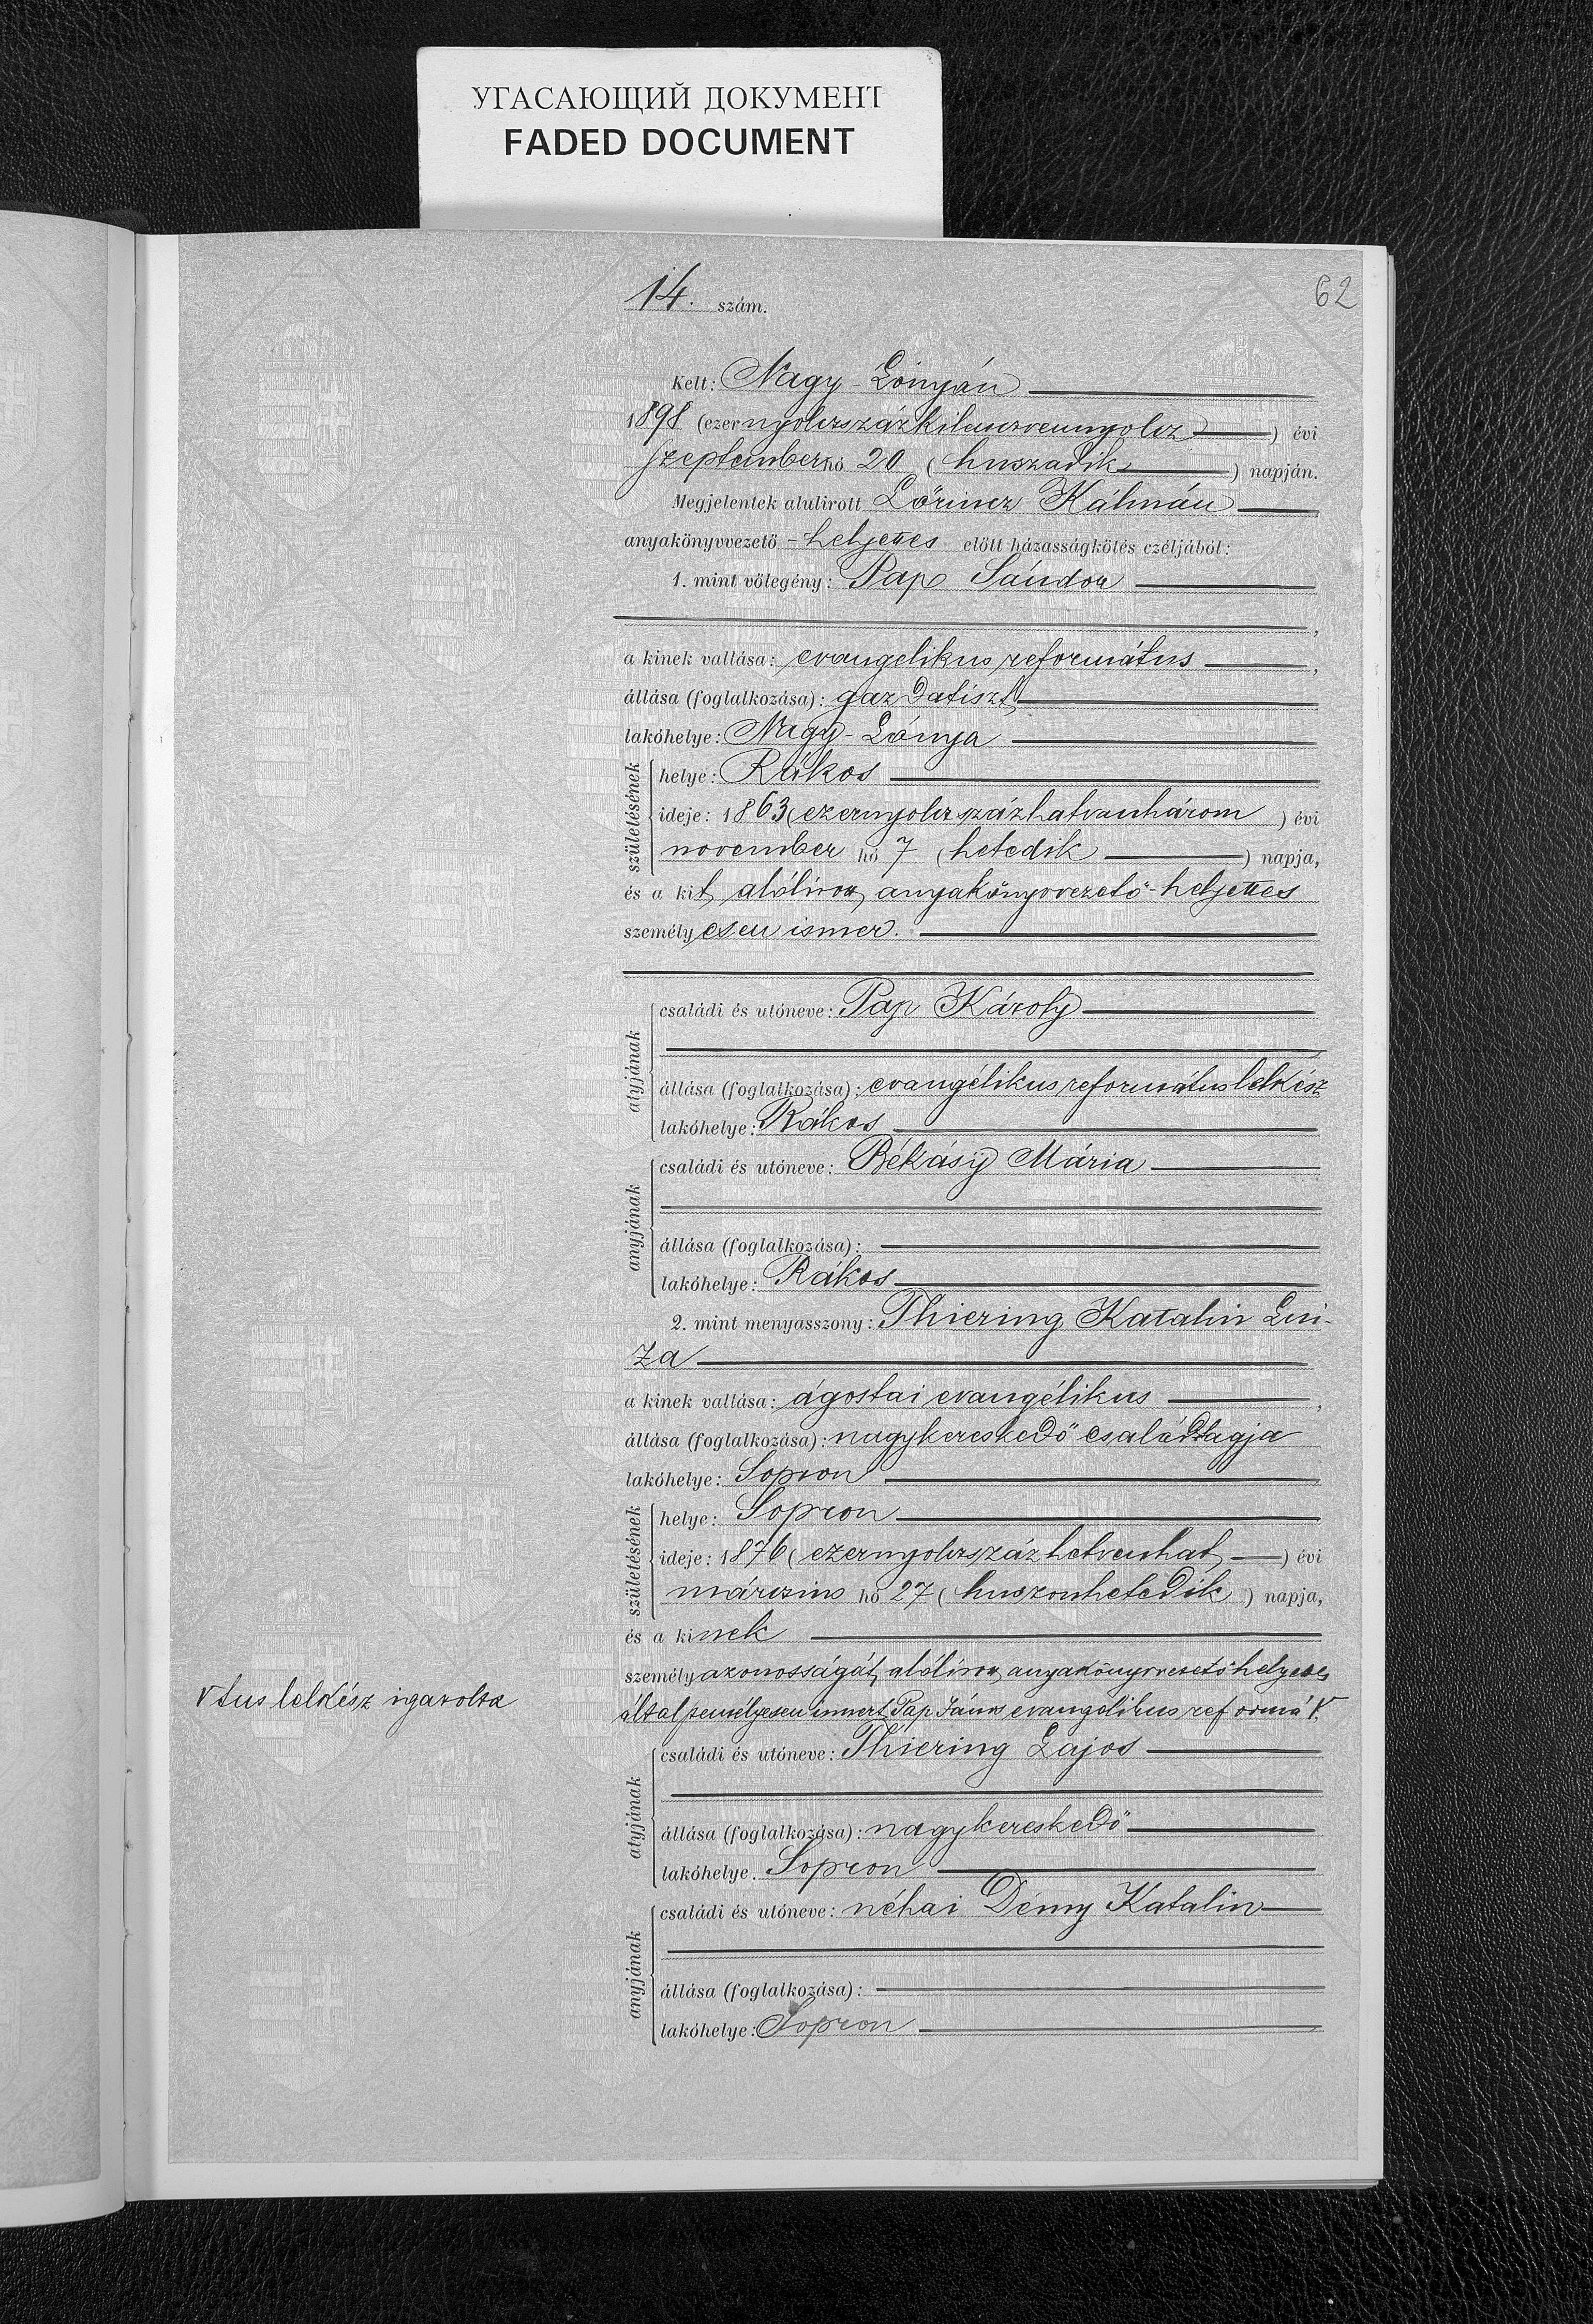 УГАСАЮЩИЙ ДОКУМЕНТ
FADED DOCUMENT
62
14. szám.
Kelt: Nagy-Lónyán
1898 (ezernyolczszázkilenczvennyolcz) évi
szeptember hó 20 (huszadik) napján.
Megjelentek alulirott Lőrincz Kálmán
anyakönyvvezető -helyettes előtt házasságkötés czéljából:
1. mint vőlegény: Pap Sándor
a kinek vallása: evangelikus református,
állása (foglalkozása): gazdatiszt
lakóhelye: Nagy-Lónya
születésének
helye: Rákos
ideje: 1863 (ezernyolczszázhatvanhárom) évi
november hó 7 (hetedik) napja,
és a kit alólirott anyakönyvvezető-helyettes
személyesen ismer.
atyjának
családi és utóneve: Pap Károly
állása (foglalkozása): evangélikus református lelkész
lakóhelye: Rákos
anyjának
családi és utóneve: Békásy Mária
állása (foglalkozása):
lakóhelye: Rákos
2. mint menyasszony: Thiering Katalin Lui-
za
a kinek vallása: ágostai evangélikus,
állása (foglalkozása): nagykereskedő családtagja
lakóhelye: Sopron
születésének
helye: Sopron
ideje: 1876 (ezernyolczszázhetvenhat) évi
márczius hó 27 (huszonhetedik) napja,
és a kinek
személyazonosságát alólirott anyakönyvvezető helyettes
által személyesen ismert Pap János evangélikus reformá V.
V tus lelkész igazolta
atyjának
családi és utóneve: Thiering Lajos
állása (foglalkozása): nagykereskedő
lakóhelye. Sopron
anyjának
családi és utóneve: néhai Démy Katalin
állása (foglalkozása):
lakóhelye: Sopron